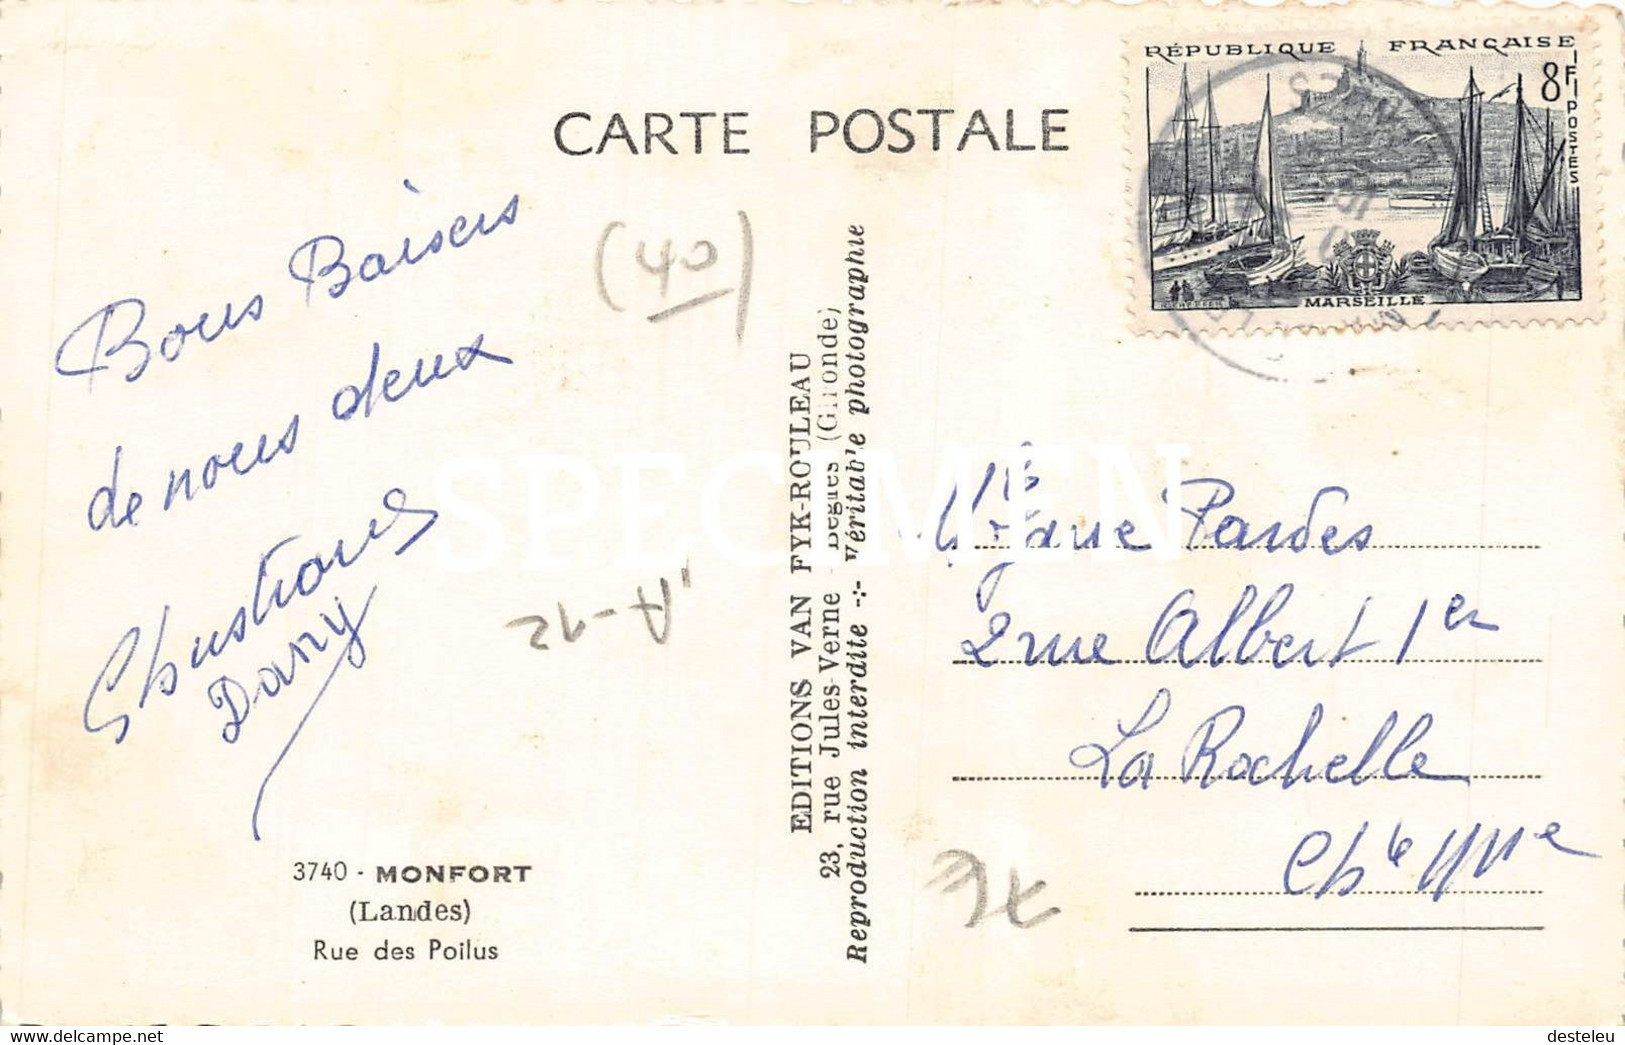 CARTE POSTALE
RÉPUBLIQUE FRANÇAISE
8F
POSTES
MARSEILLE
Bons Baisers
de nous deux
Dany
(40)
EDITIONS VAN FYK-ROULEAU
23, rue Jules-Verne - Bègles (Gironde)
Reproduction interdite -:- Véritable photographie
SPECIMEN
Pardes
2 rue Albert 1er
La Rochelle
Chte Mme
3740 - MONFORT
(Landes)
Rue des Poilus
delcampe.net
desteleu